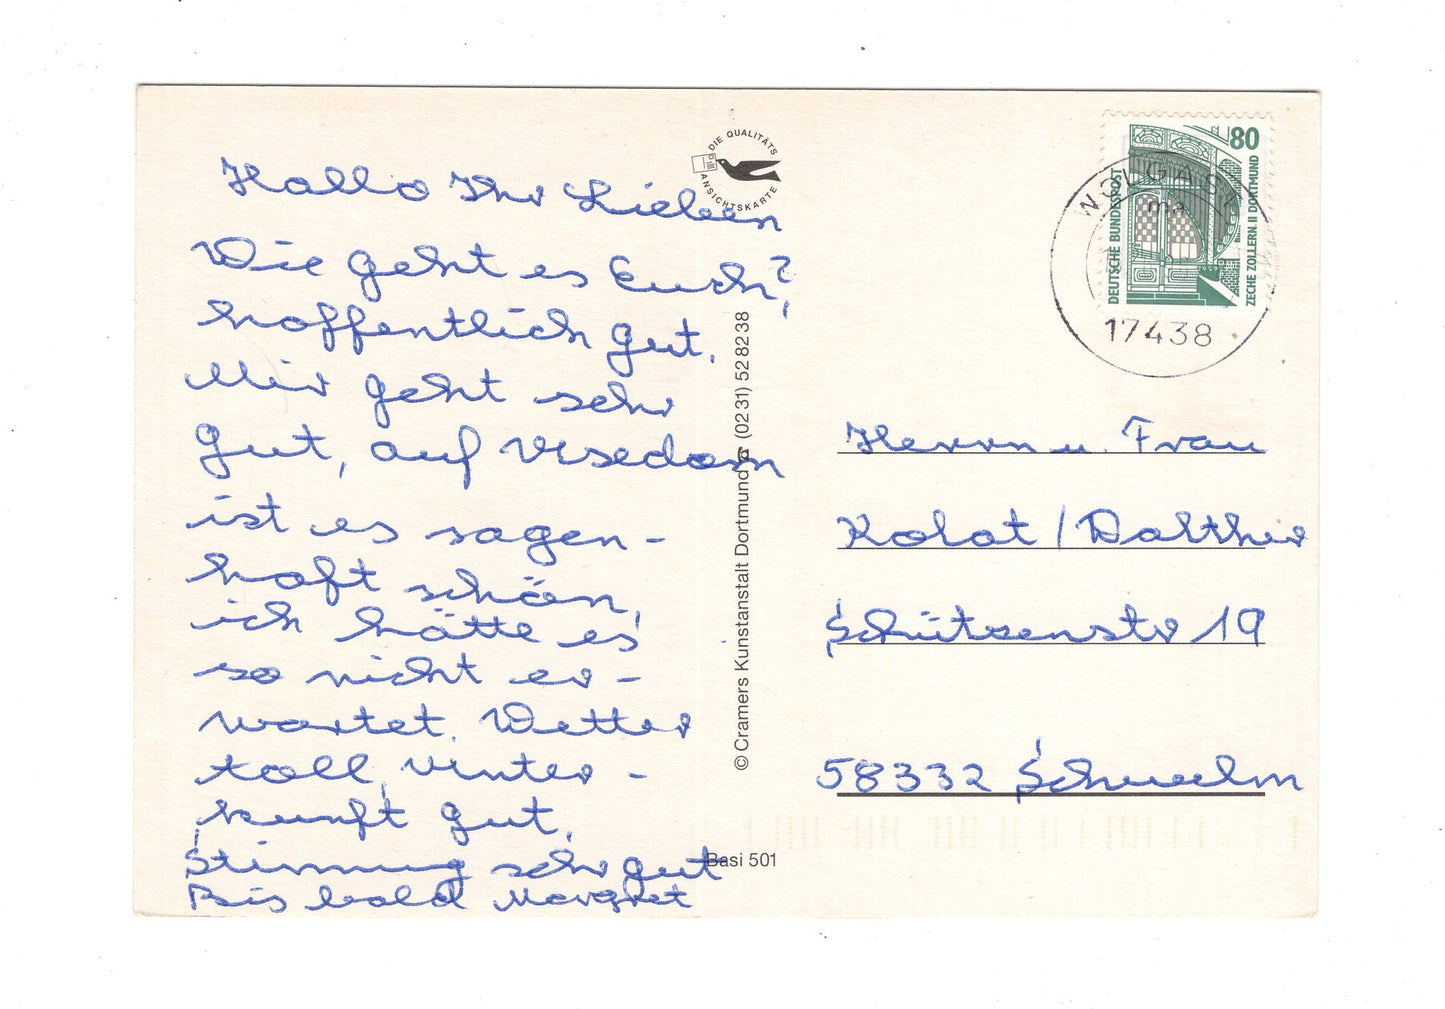 Hallo Ihr Lieben
Wie geht es Euch?
hoffentlich gut.
Mir geht sehr
gut, auf Usedom
ist es sagen-
haft schön,
ich hätte es
so nicht er-
wartet. Wetter
toll, Unter-
kunft gut,
Stimmung sehr gut
Bis bald Margret
DIE QUALITÄTS
ANSICHTSKARTE
© Cramers Kunstanstalt Dortmund ☎ (0231) 528238
Basi 501
DEUTSCHE BUNDESPOST
80
ZECHE ZOLLERN II DORTMUND
WOLGAST
ma
17438
Herrn u. Frau
Kolat / Dalthier
Schützenstr 19
58332 Schwelm